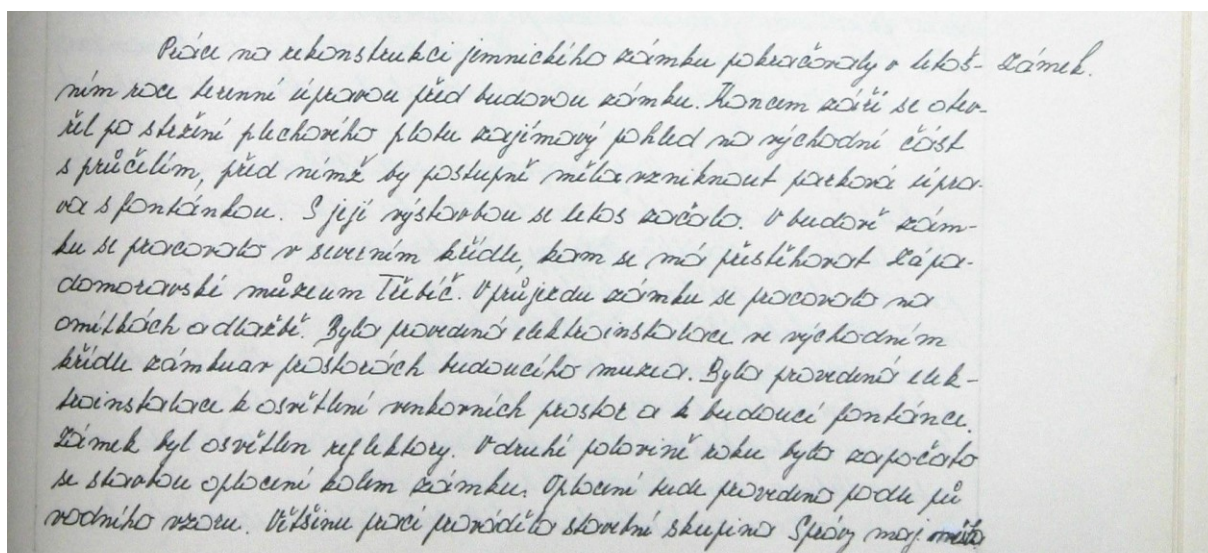 Práce na rekonstrukci jemnického zámku pokračovaly v letoš- Zámek.
ním roce terenní úpravou před budovou zámku. Koncem září se otev-
řel po stržení plechového plotu zajímavý pohled na východní část
s průčelím, před nímž by postupně měla vzniknout parková úpra-
va s fontánkou. S její výstavbou se letos začalo. V budově zám-
ku se pracovalo v severním křídle, kam se má přistěhovat Zápa-
domoravské múzeum Třebíč. V průjezdu zámku se pracovalo na
omítkách a dlažbě. Byla provedena elektroinstalace ve východním
křídle zámku a v prostorách budoucího muzea. Byla provedena elek-
troinstalace k osvětlení venkovních prostor a k budoucí fontánce.
Zámek byl osvětlen reflektory. V druhé polovině roku bylo započato
se stavbou oplocení kolem zámku. Oplocení bude provedeno podle pů
vodního vzoru. Většinu prací prováděla stavební skupina Správy maj. města